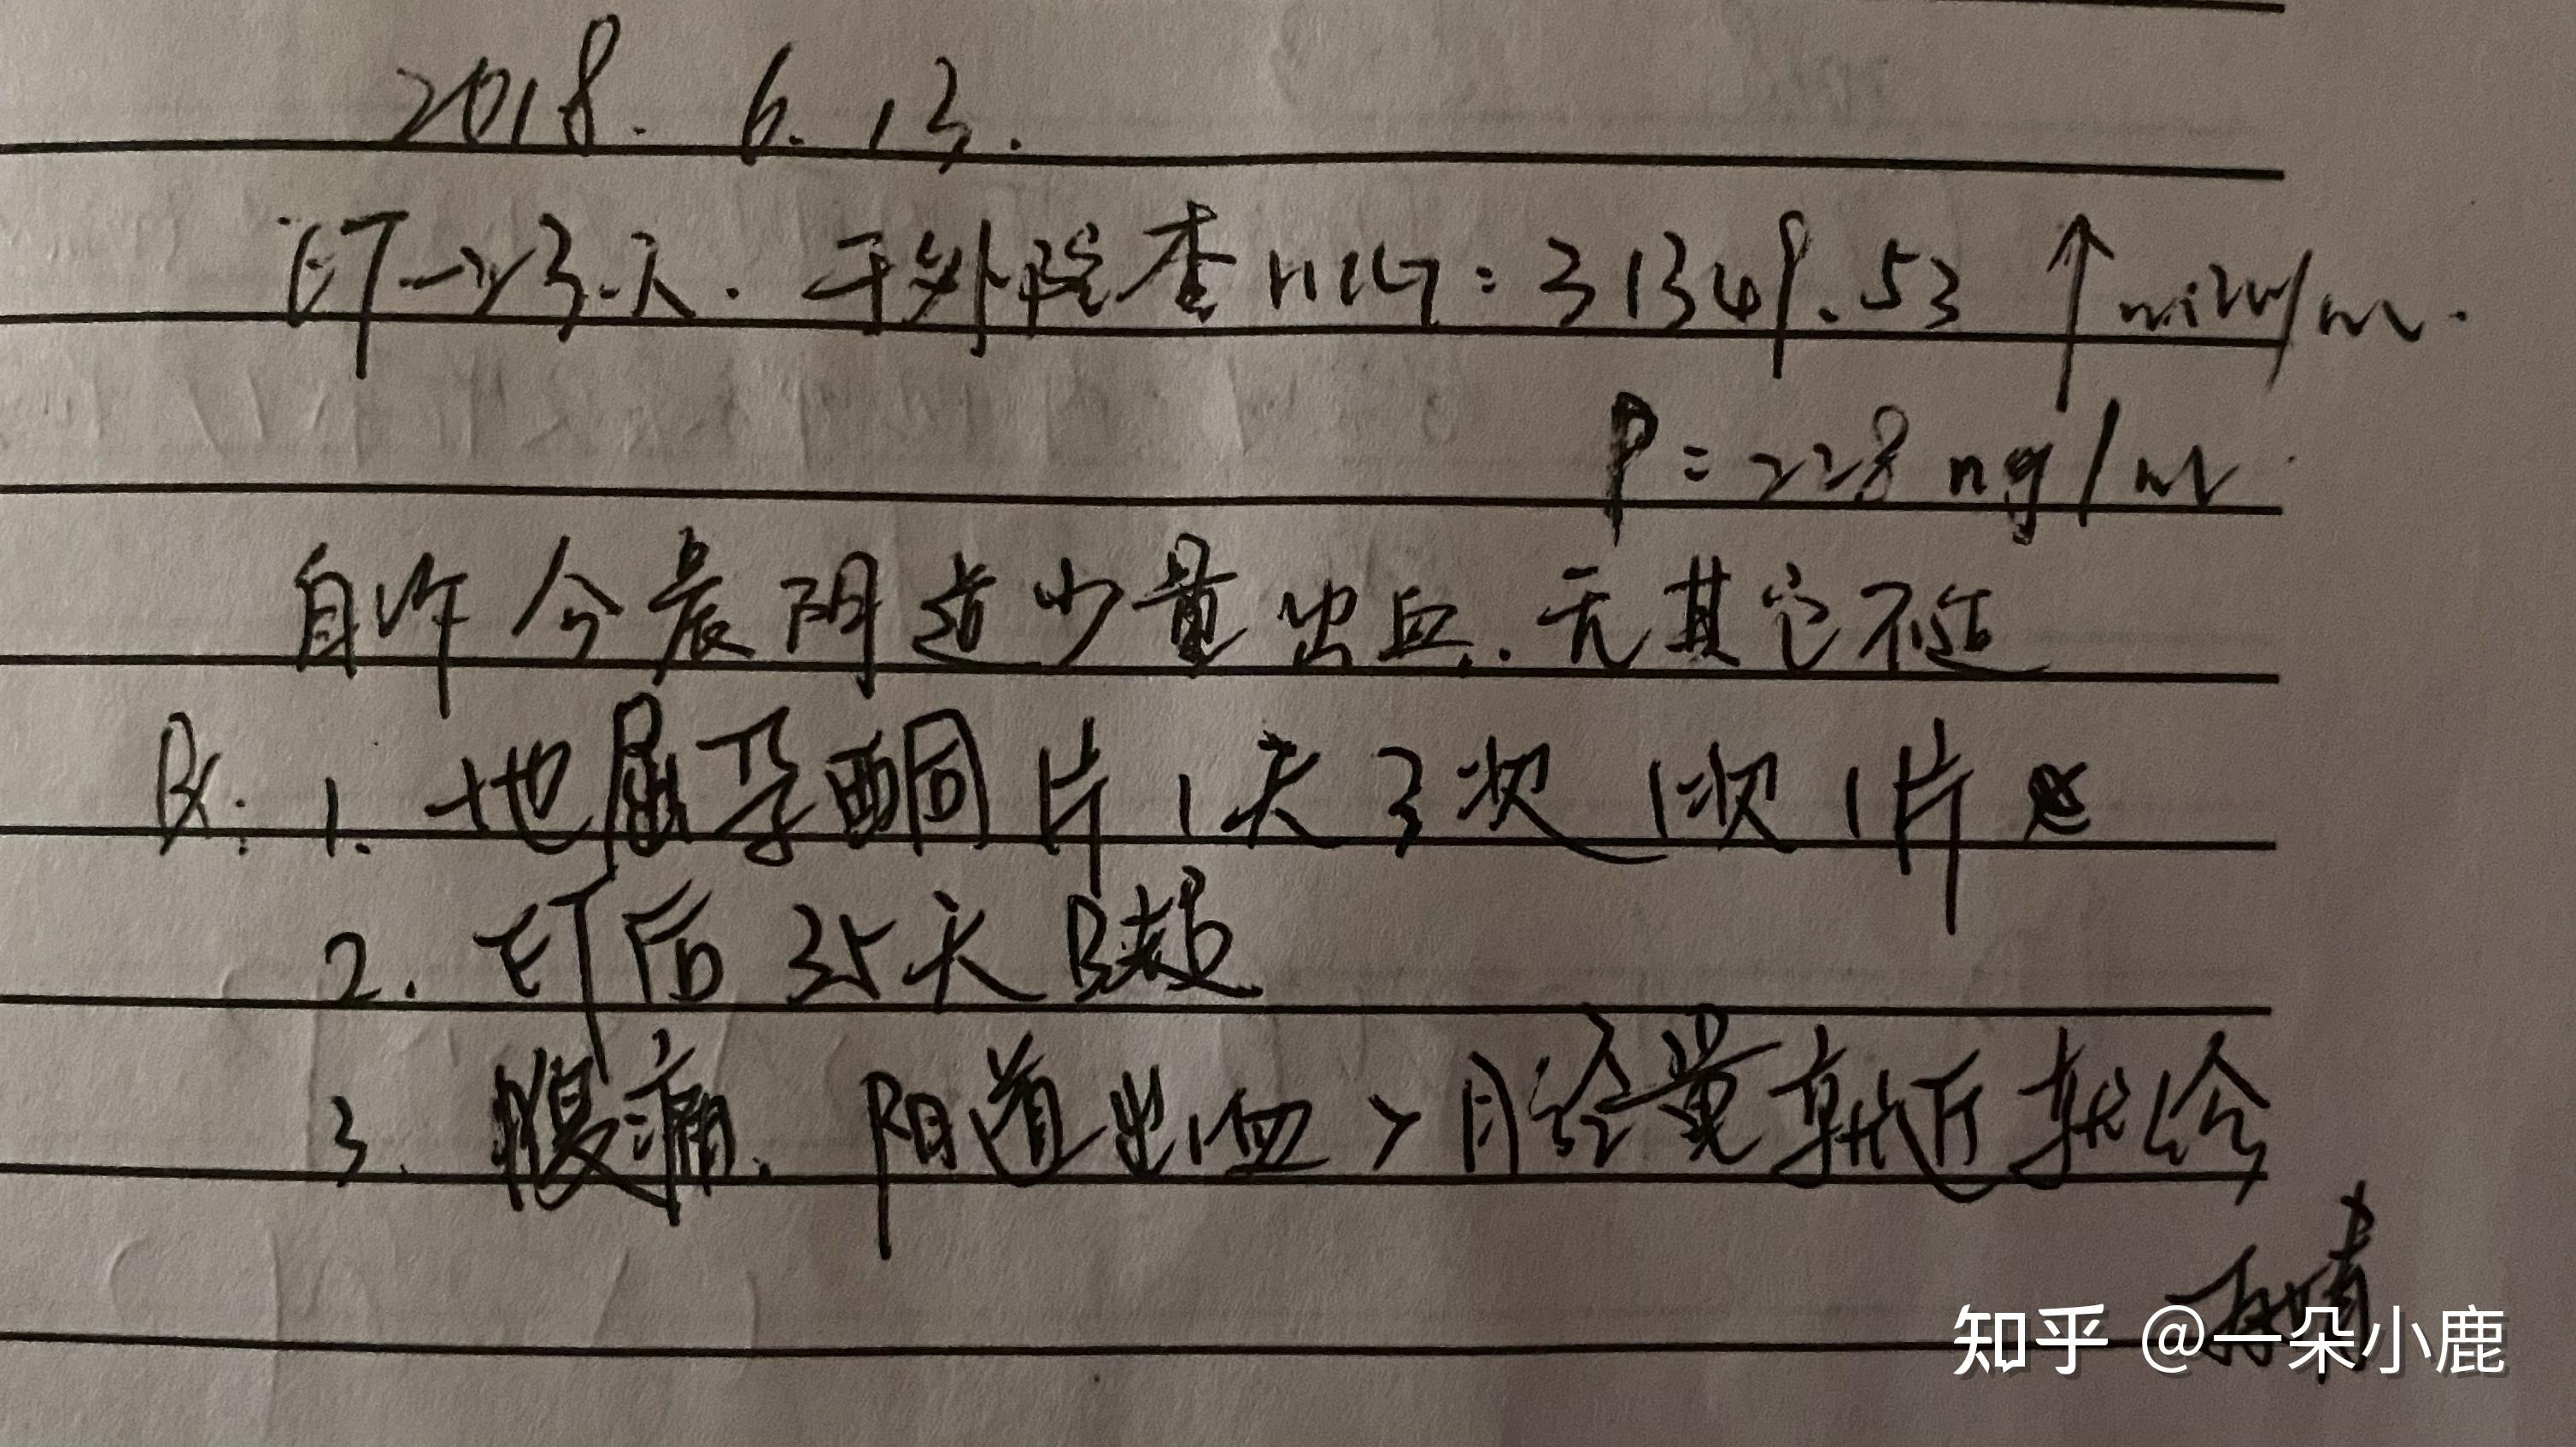 2018. 6. 13.
ET→23天. 于外院查HCG: 31349.53 ↑ miu/ml.
P = 228 ng/ml.
自昨今晨阴道少量出血. 无其它不适
Rx: 1. 地屈孕酮片 1天3次 1次1片
2. ET后35天B超
3. 腹痛. 阴道出血 > 月经量就近就诊
知乎 @一朵小鹿